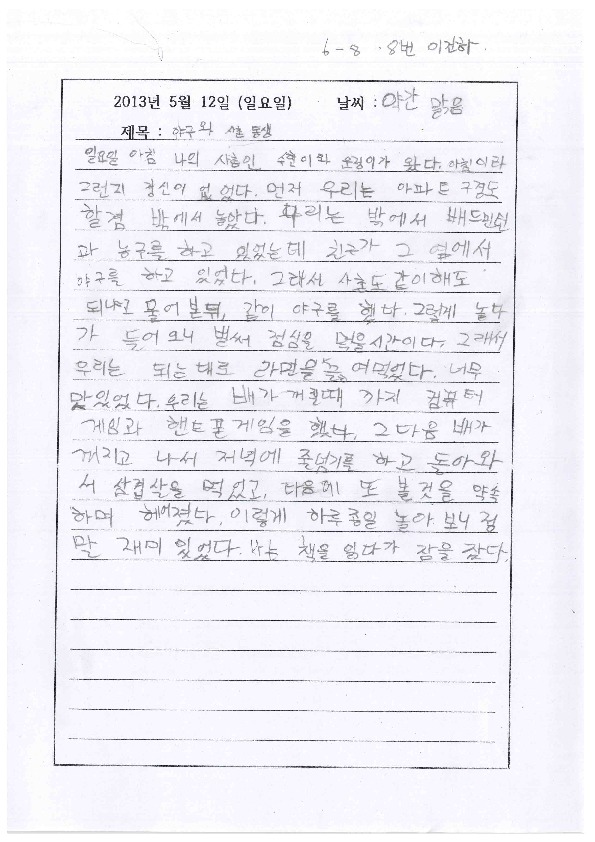 6-8 8번 이건하
2013년 5월 12일 (일요일) 날씨 : 약간 맑음
제목 : 야구와 사촌 동생
일요일 아침 나의 사촌인 이와 이가 왔다. 아침이라
그런지 정신이 없었다. 먼저 우리는 아파트 구경도
할겸 밖에서 놀았다. 우리는 밖에서 배드민턴
과 농구를 하고 있었는데 친구가 그 옆에서
야구를 하고 있었다. 그래서 사촌도 같이해도
되냐고 물어본뒤, 같이 야구를 했다. 그렇게 놀다
가 들어오니 벌써 점심을 먹을시간이다. 그래서
우리는 되는대로 라면을 먹었다. 너무
맛있었다. 우리는 배가 꺼질때 까지 컴퓨터
게임과 핸드폰게임을 했다. 그 다음 배가
꺼지고 나서 저녁에 줄넘기를 하고 돌아와
서 삼겹살을 먹었고, 다음에 또 볼것을 약속
하며 헤어졌다. 이렇게 하루종일 놀아 보니 정
말 재미 있었다. 나는 책을 읽다가 잠을 잤다.